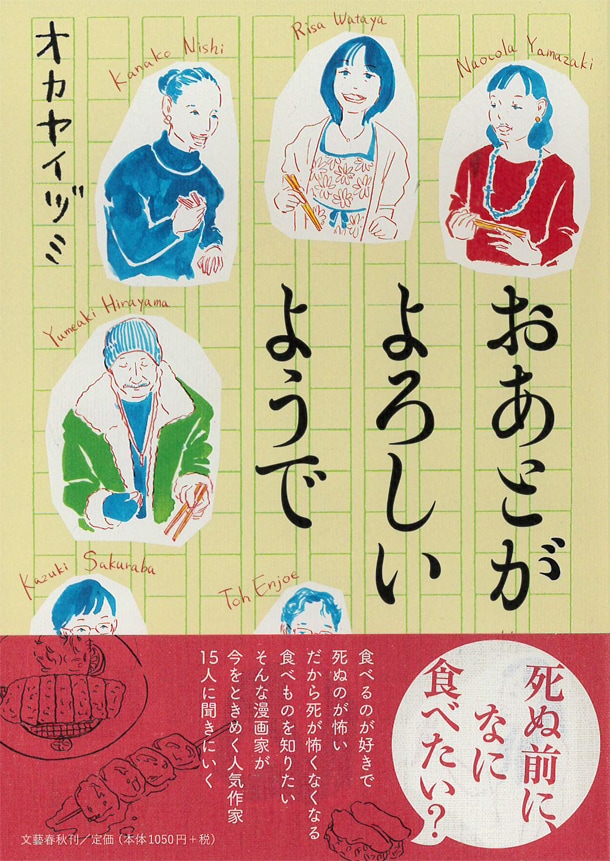 Kanako Nishi
Risa Wataya
Naocola Yamazaki
オカヤイヅミ
おあとが
よろしい
ようで
Yumeaki Hirayama
Kazuki Sakuraba
Toh Enjoe
死ぬ前に、
なに
食べたい?
食べるのが好きで
死ぬのが怖い
だから死が怖くなくなる
食べものを知りたい
そんな漫画家が
今をときめく人気作家
15人に聞きにいく
文藝春秋刊／定価（本体1050円＋税）